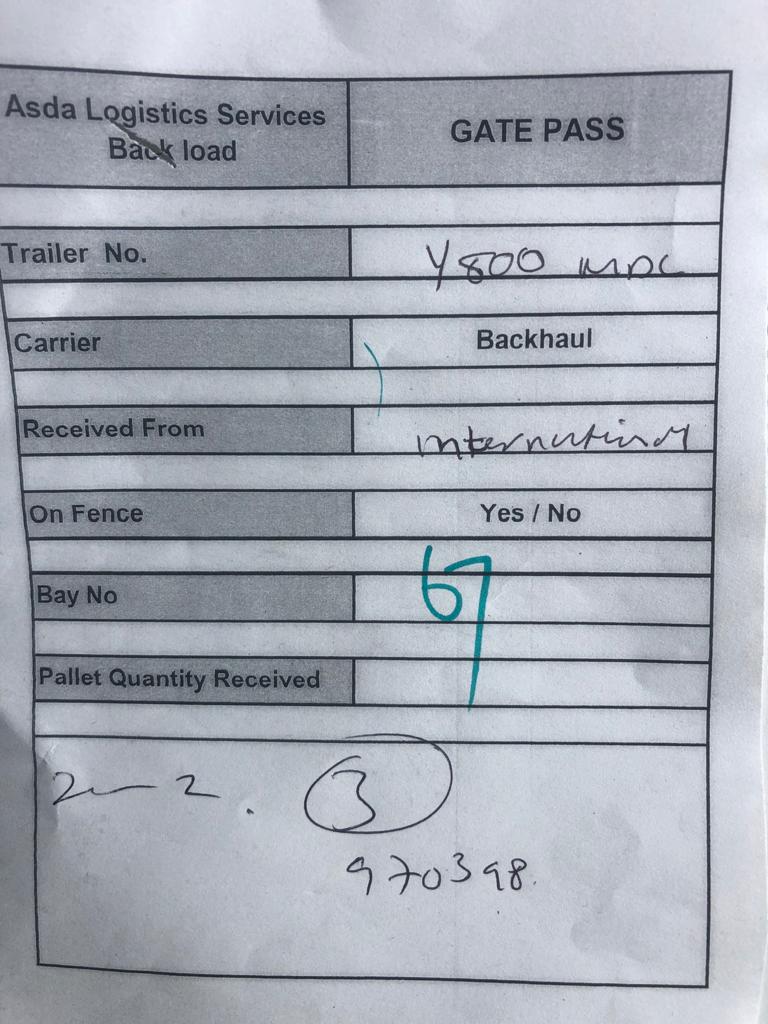 Asda Logistics Services
Back load
GATE PASS
Trailer No.
Y800 MDC
Carrier
Backhaul
Received From
International
On Fence
Yes / No
Bay No
67
Pallet Quantity Received
2 — 2 . 3
970398.